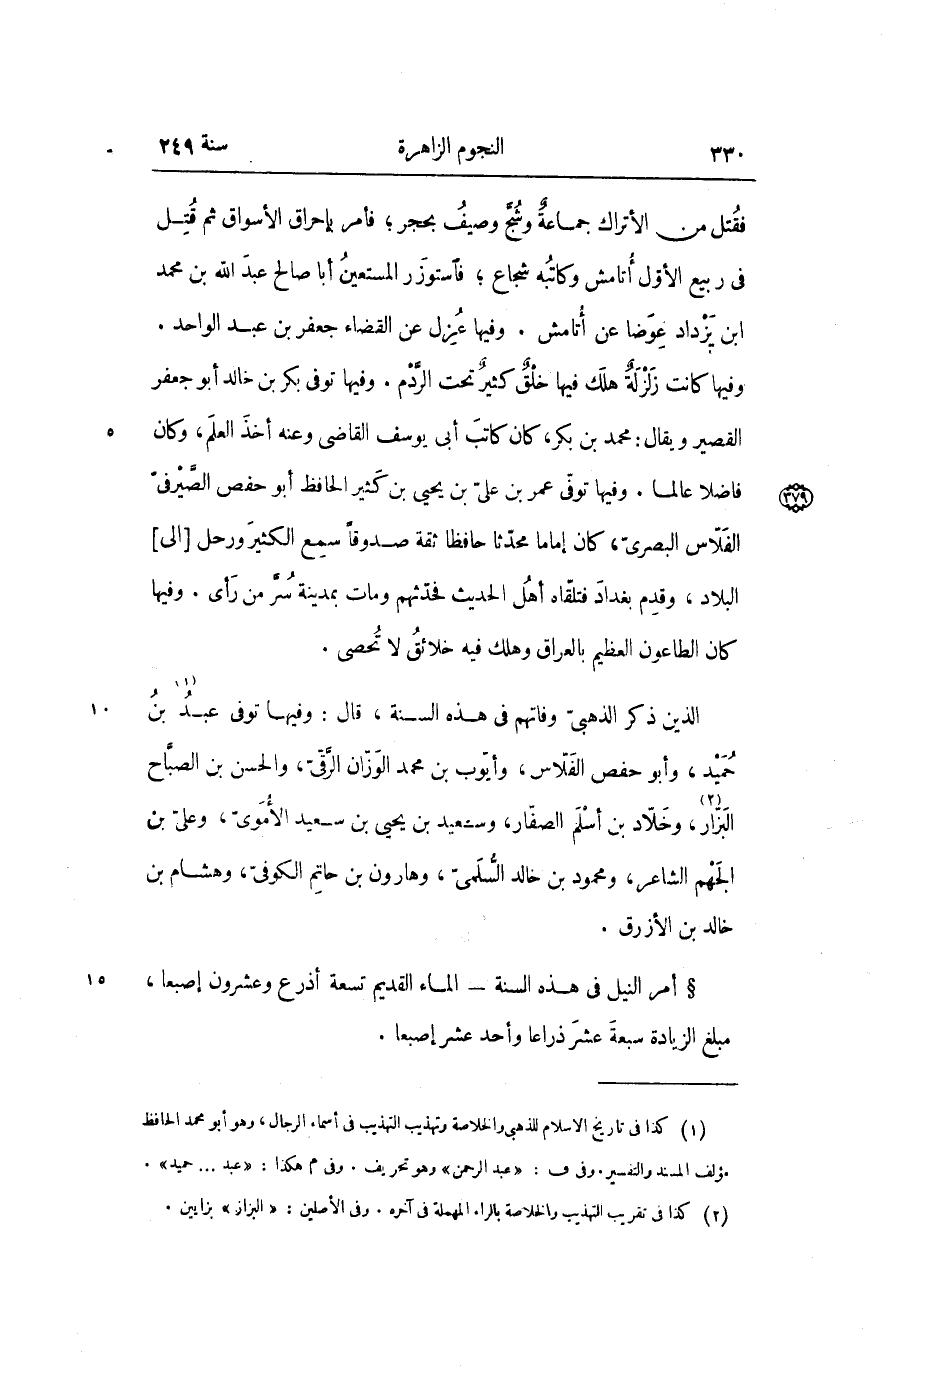 ٣٣٠ النجوم الزاهرة سنة ٢٤٩
فقُتل من الأتراك جماعةٌ وشُجَّ وصيفُ بحجر؛ فأمر بإحراق الأسواق ثم قُتِل
فى ربيع الأوّل أُتامش وكاتبُه شجاع؛ فآستوزر المستعينُ أبا صالح عبدَ الله بن محمد
ابن يَزْداد عِوَضا عن أُتامش . وفيها عُزِل عن القضاء جعفر بن عبد الواحد .
وفيها كانت زَلْزَلةٌ هلَك فيها خلْقٌ كثيرٌ تحت الرَّدْم . وفيها توفى بكر بن خالد أبو جعفر
القصير ويقال: محمد بن بكر، كان كاتبَ أبى يوسف القاضى وعنه أخذَ العلَم، وكان ٥
فاضلا عالما . وفيها توفّى عمر بن علىّ بن يحيى بن كَثير الحافظ أبو حفص الصَّيْرفىّ ٣٧٩
الفَلّاس البصرىّ، كان إماما محدّثا حافظا ثقة صدوقاً سمِع الكثيرَ ورحل [الى]
البلاد، وقدِم بغدادَ فتلقّاه أهلُ الحديث فحدّثهم ومات بمدينة سُرَّ من رَأى . وفيها
كان الطاعون العظيم بالعراق وهلك فيه خلائقُ لا تُحصى .
الذين ذكر الذهبىّ وفاتهم فى هذه السنة، قال : وفيها توفى عبدُ بنُ (١) ١٠
حُمَيْد، وأبو حفص الفَلّاس، وأيّوب بن محمد الوَزّان الرَّقّىّ، والحسن بن الصبَّاح
البَزّار (٢)، وخَلّاد بن أسْلَم الصفّار، وسعيد بن يحيى بن سعيد الأُمَوىّ، وعلىّ بن
الجَهْم الشاعر، ومحمود بن خالد السُّلَمىّ، وهارون بن حاتِم الكوفىّ، وهشام بن
خالد بن الأزرق .
§ أمر النيل فى هذه السنة — الماء القديم تسعة أذرع وعشرون إصبعا، ١٥
مبلغ الزيادة سبعةَ عشرَ ذراعا وأحد عشر إصبعا .
(١) كذا فى تاريخ الاسلام للذهبى والخلاصة وتهذيب التهذيب فى أسماء الرجال، وهو أبو محمد الحافظ
مؤلف المسند والتفسير. وفى ف : «عبد الرحمن» وهو تحريف . وفى م هكذا : «عبد ... حميد» .
(٢) كذا فى تقريب التهذيب والخلاصة بالراء المهملة فى آخره . وفى الأصلين : «البزاز» بزايين .